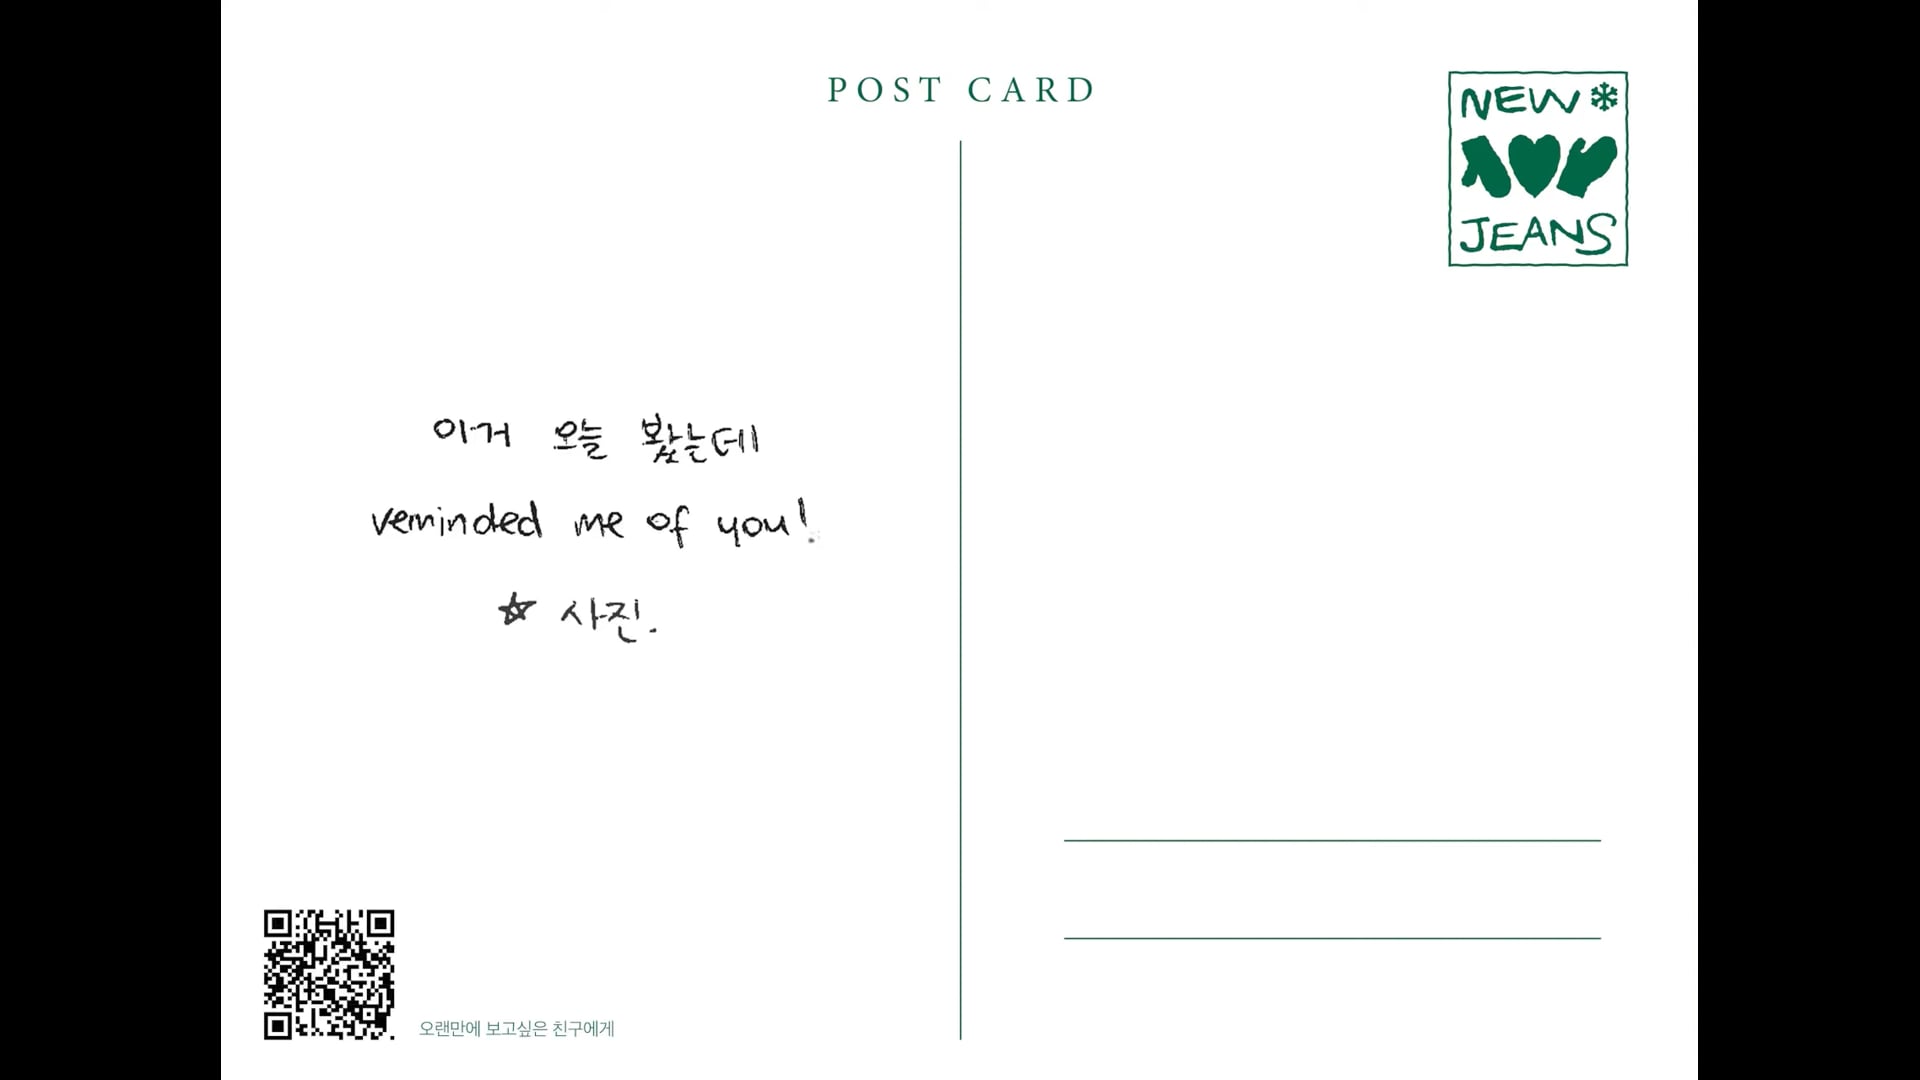 POST CARD
NEW
JEANS
이거 오늘 봤는데
reminded me of you!
☆ 사진.
오랜만에 보고싶은 친구에게